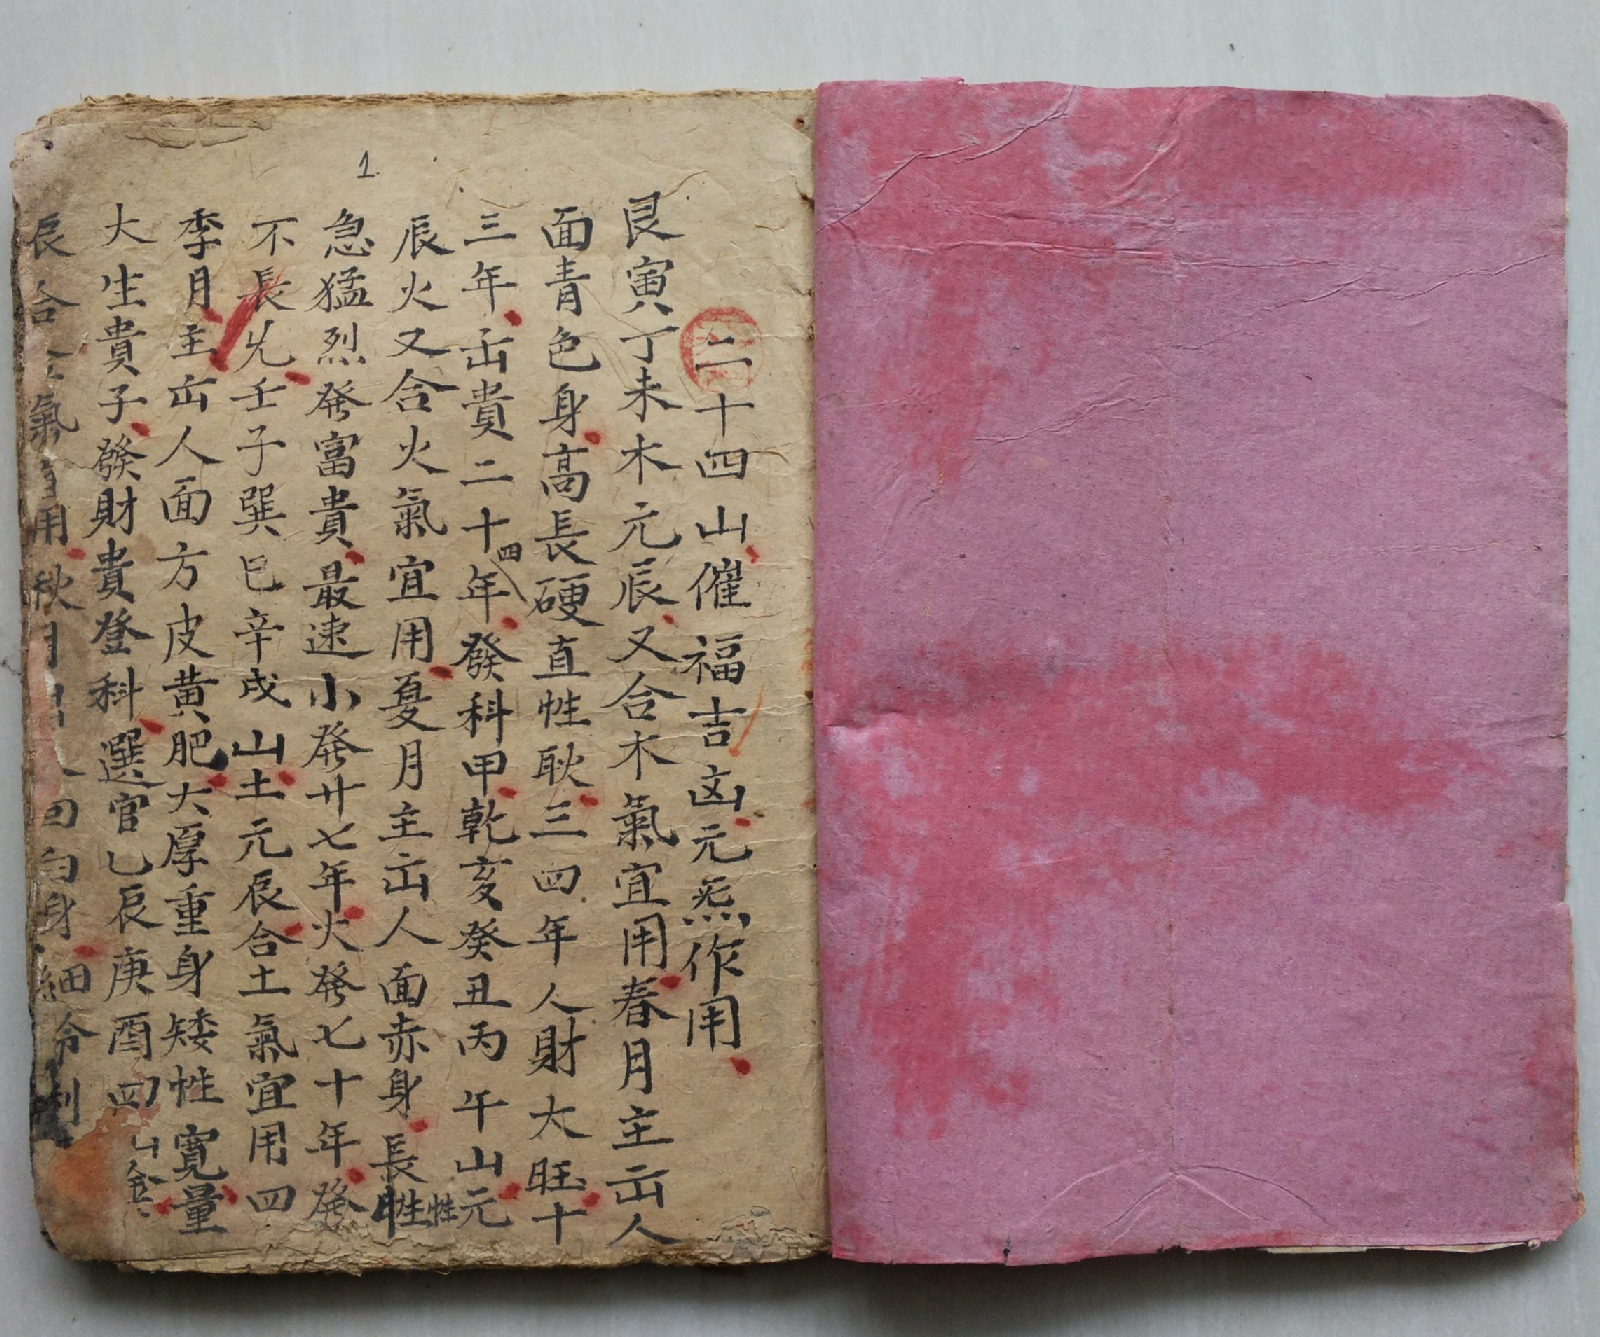 1
二十四山催福吉凶元炁作用
艮寅丁未木元辰又合木氣宜用春月主出人
面青色身高長硬直性耿三四年人財大旺十
三年出貴二十四年發科甲乾亥癸丑丙午山元
辰火又合火氣宜用夏月主出人面赤身長性性
急猛烈發富貴最速小發廿七年火發七十年發
不長久壬子巽巳辛戌山土元辰合土氣宜用四
季月主出人面方皮黄肥大厚重身矮性寬量
大生貴子發財貴登科選官乙辰庚酉四山金
辰合金氣用秋月白身細伶俐